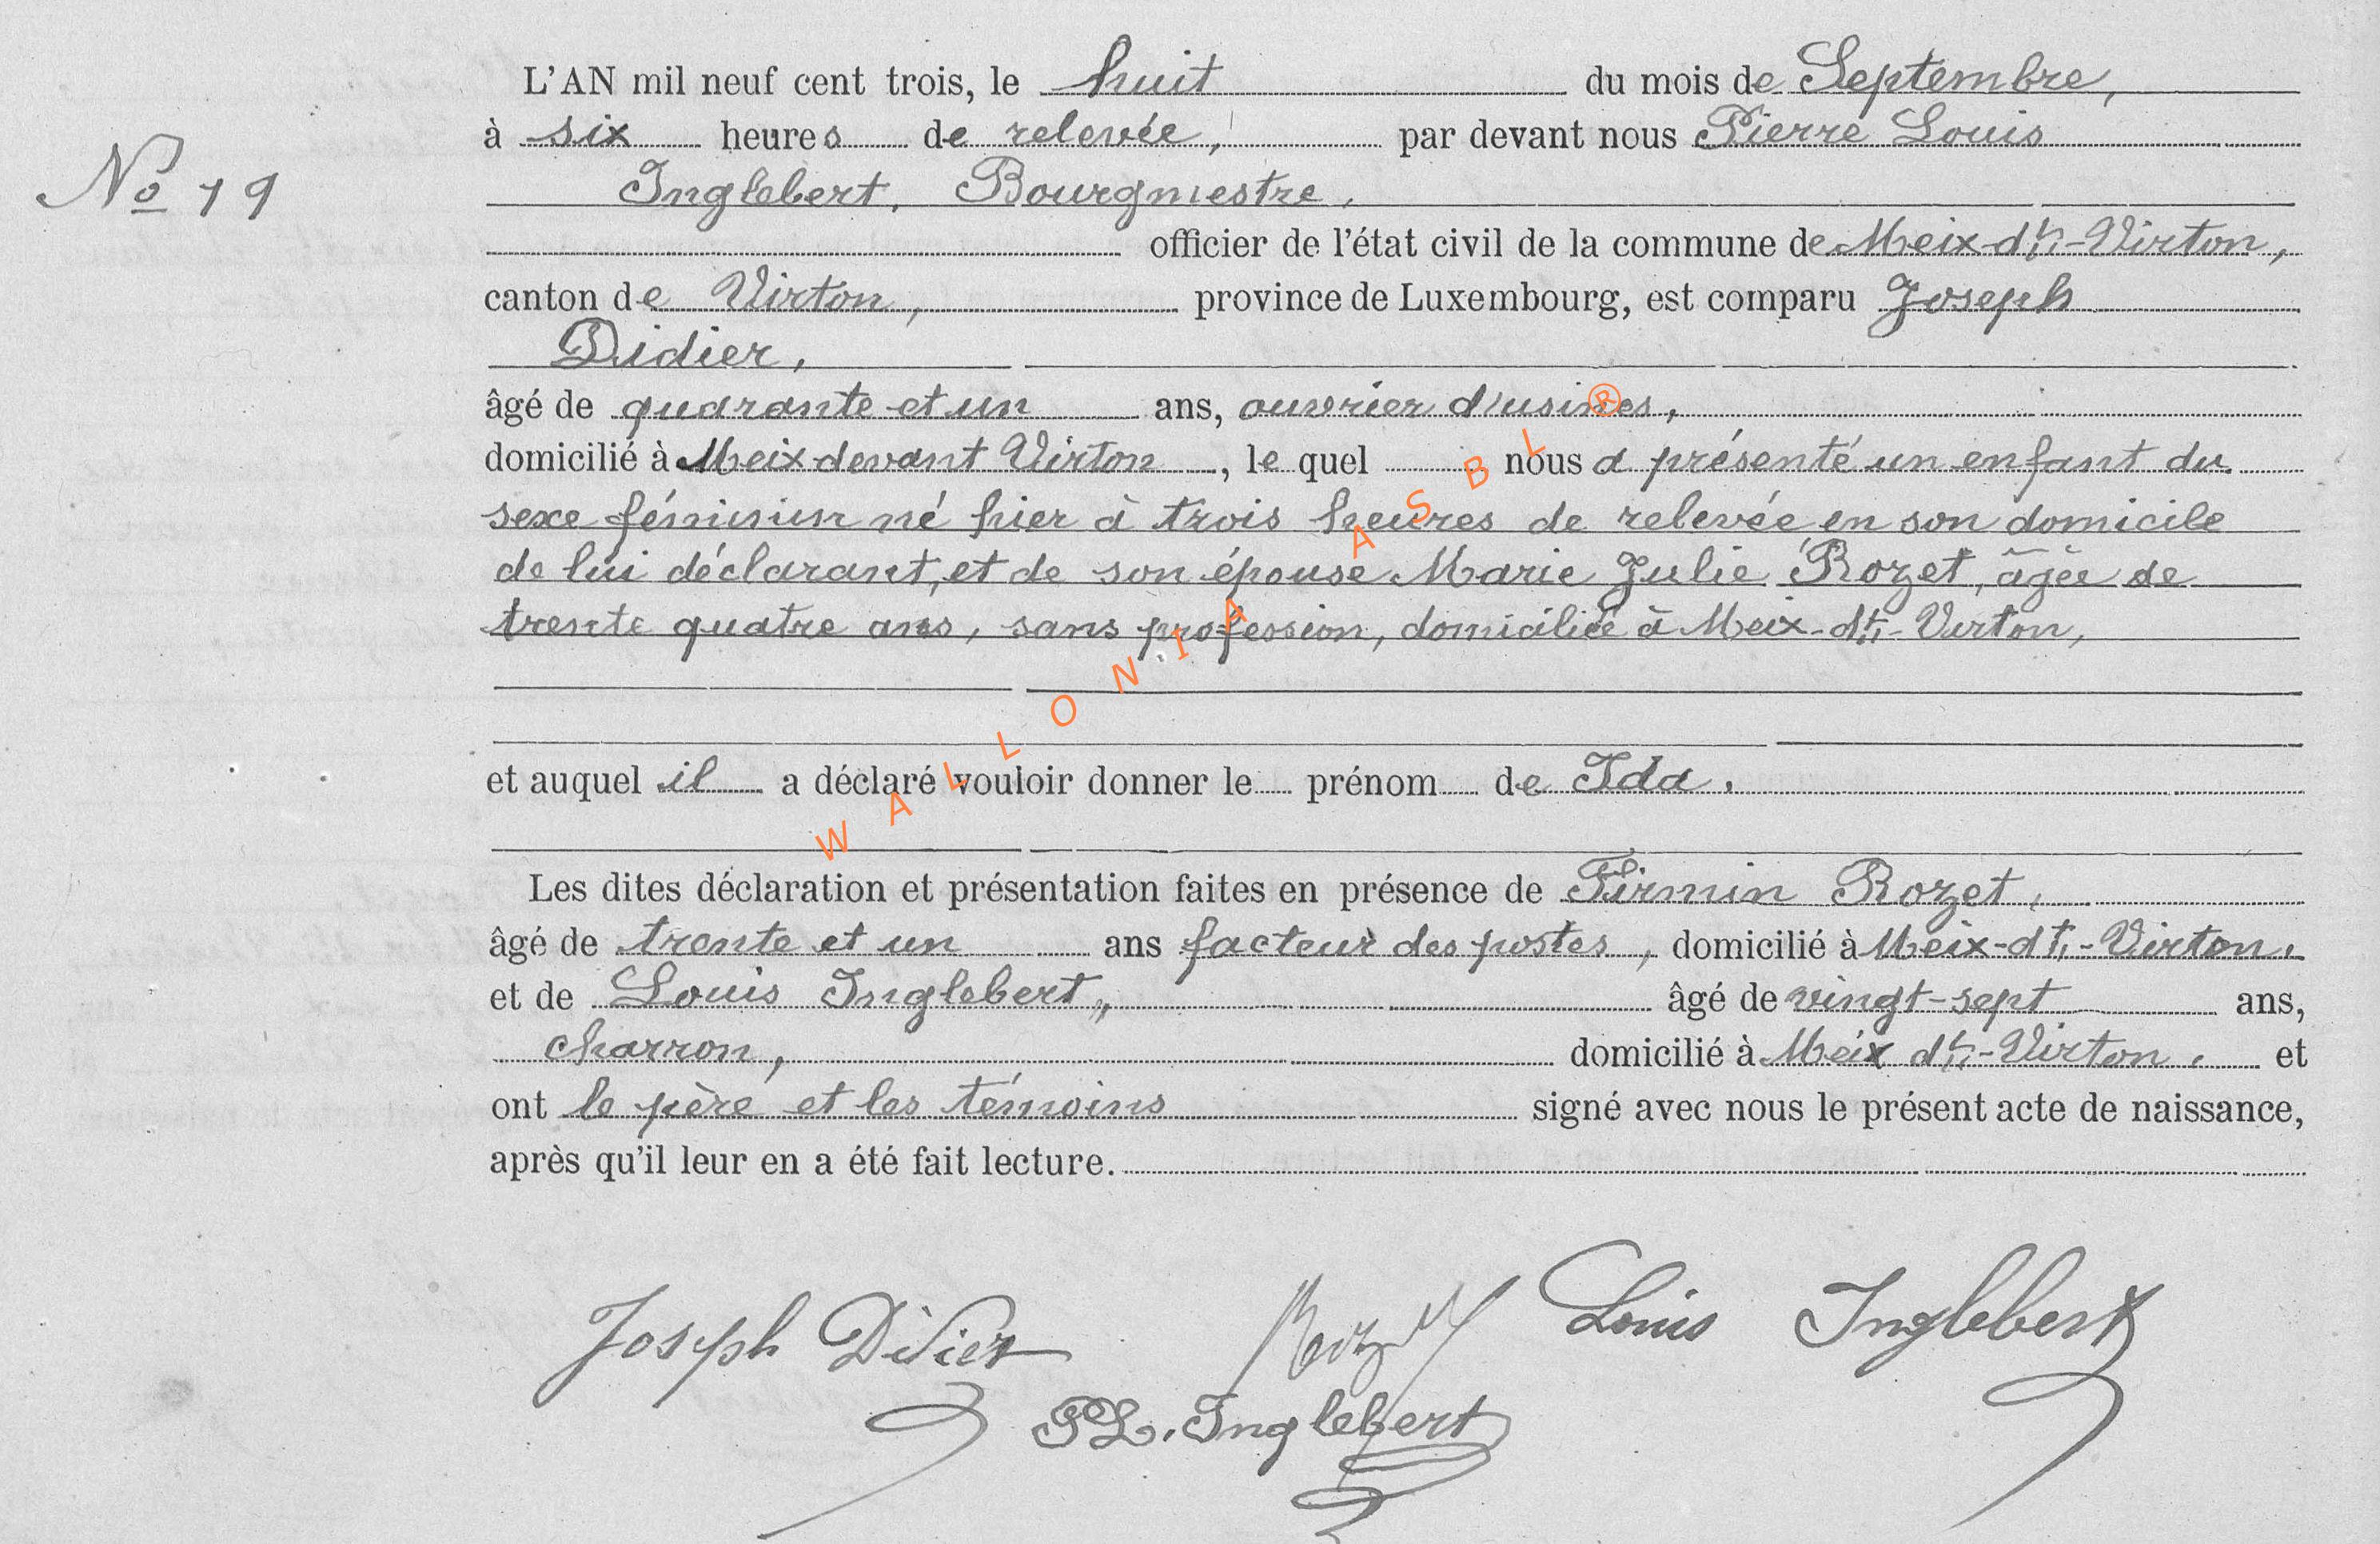 L'AN mil neuf cent trois, le huit du mois de Septembre,
à six heures de relevée, par devant nous Pierre Louis
No 19
Inglebert, Bourgmestre,
officier de l'état civil de la commune de Meix-dt-Virton,
canton de Virton, province de Luxembourg, est comparu Joseph
Didier,
âgé de quarante et un ans, ouvrier d'usines,
domicilié à Meix devant Virton, le quel nous a présenté un enfant du
sexe féminin né hier à trois heures de relevée en son domicile
de lui déclarant, et de son épouse Marie Julie Rozet, âgée de
trente quatre ans, sans profession, domiciliée à Meix-dt-Virton,
et auquel il a déclaré vouloir donner le prénom de Ida.
Les dites déclaration et présentation faites en présence de Firmin Rozet,
âgé de trente et un ans facteur des postes, domicilié à Meix-dt-Virton,
et de Louis Inglebert, âgé de vingt-sept ans,
charron, domicilié à Meix dt-Virton, et
ont le père et les témoins signé avec nous le présent acte de naissance,
après qu'il leur en a été fait lecture.
Joseph Didier Rozet Louis Inglebert
PL. Inglebert
WALLONIA ASBL ®